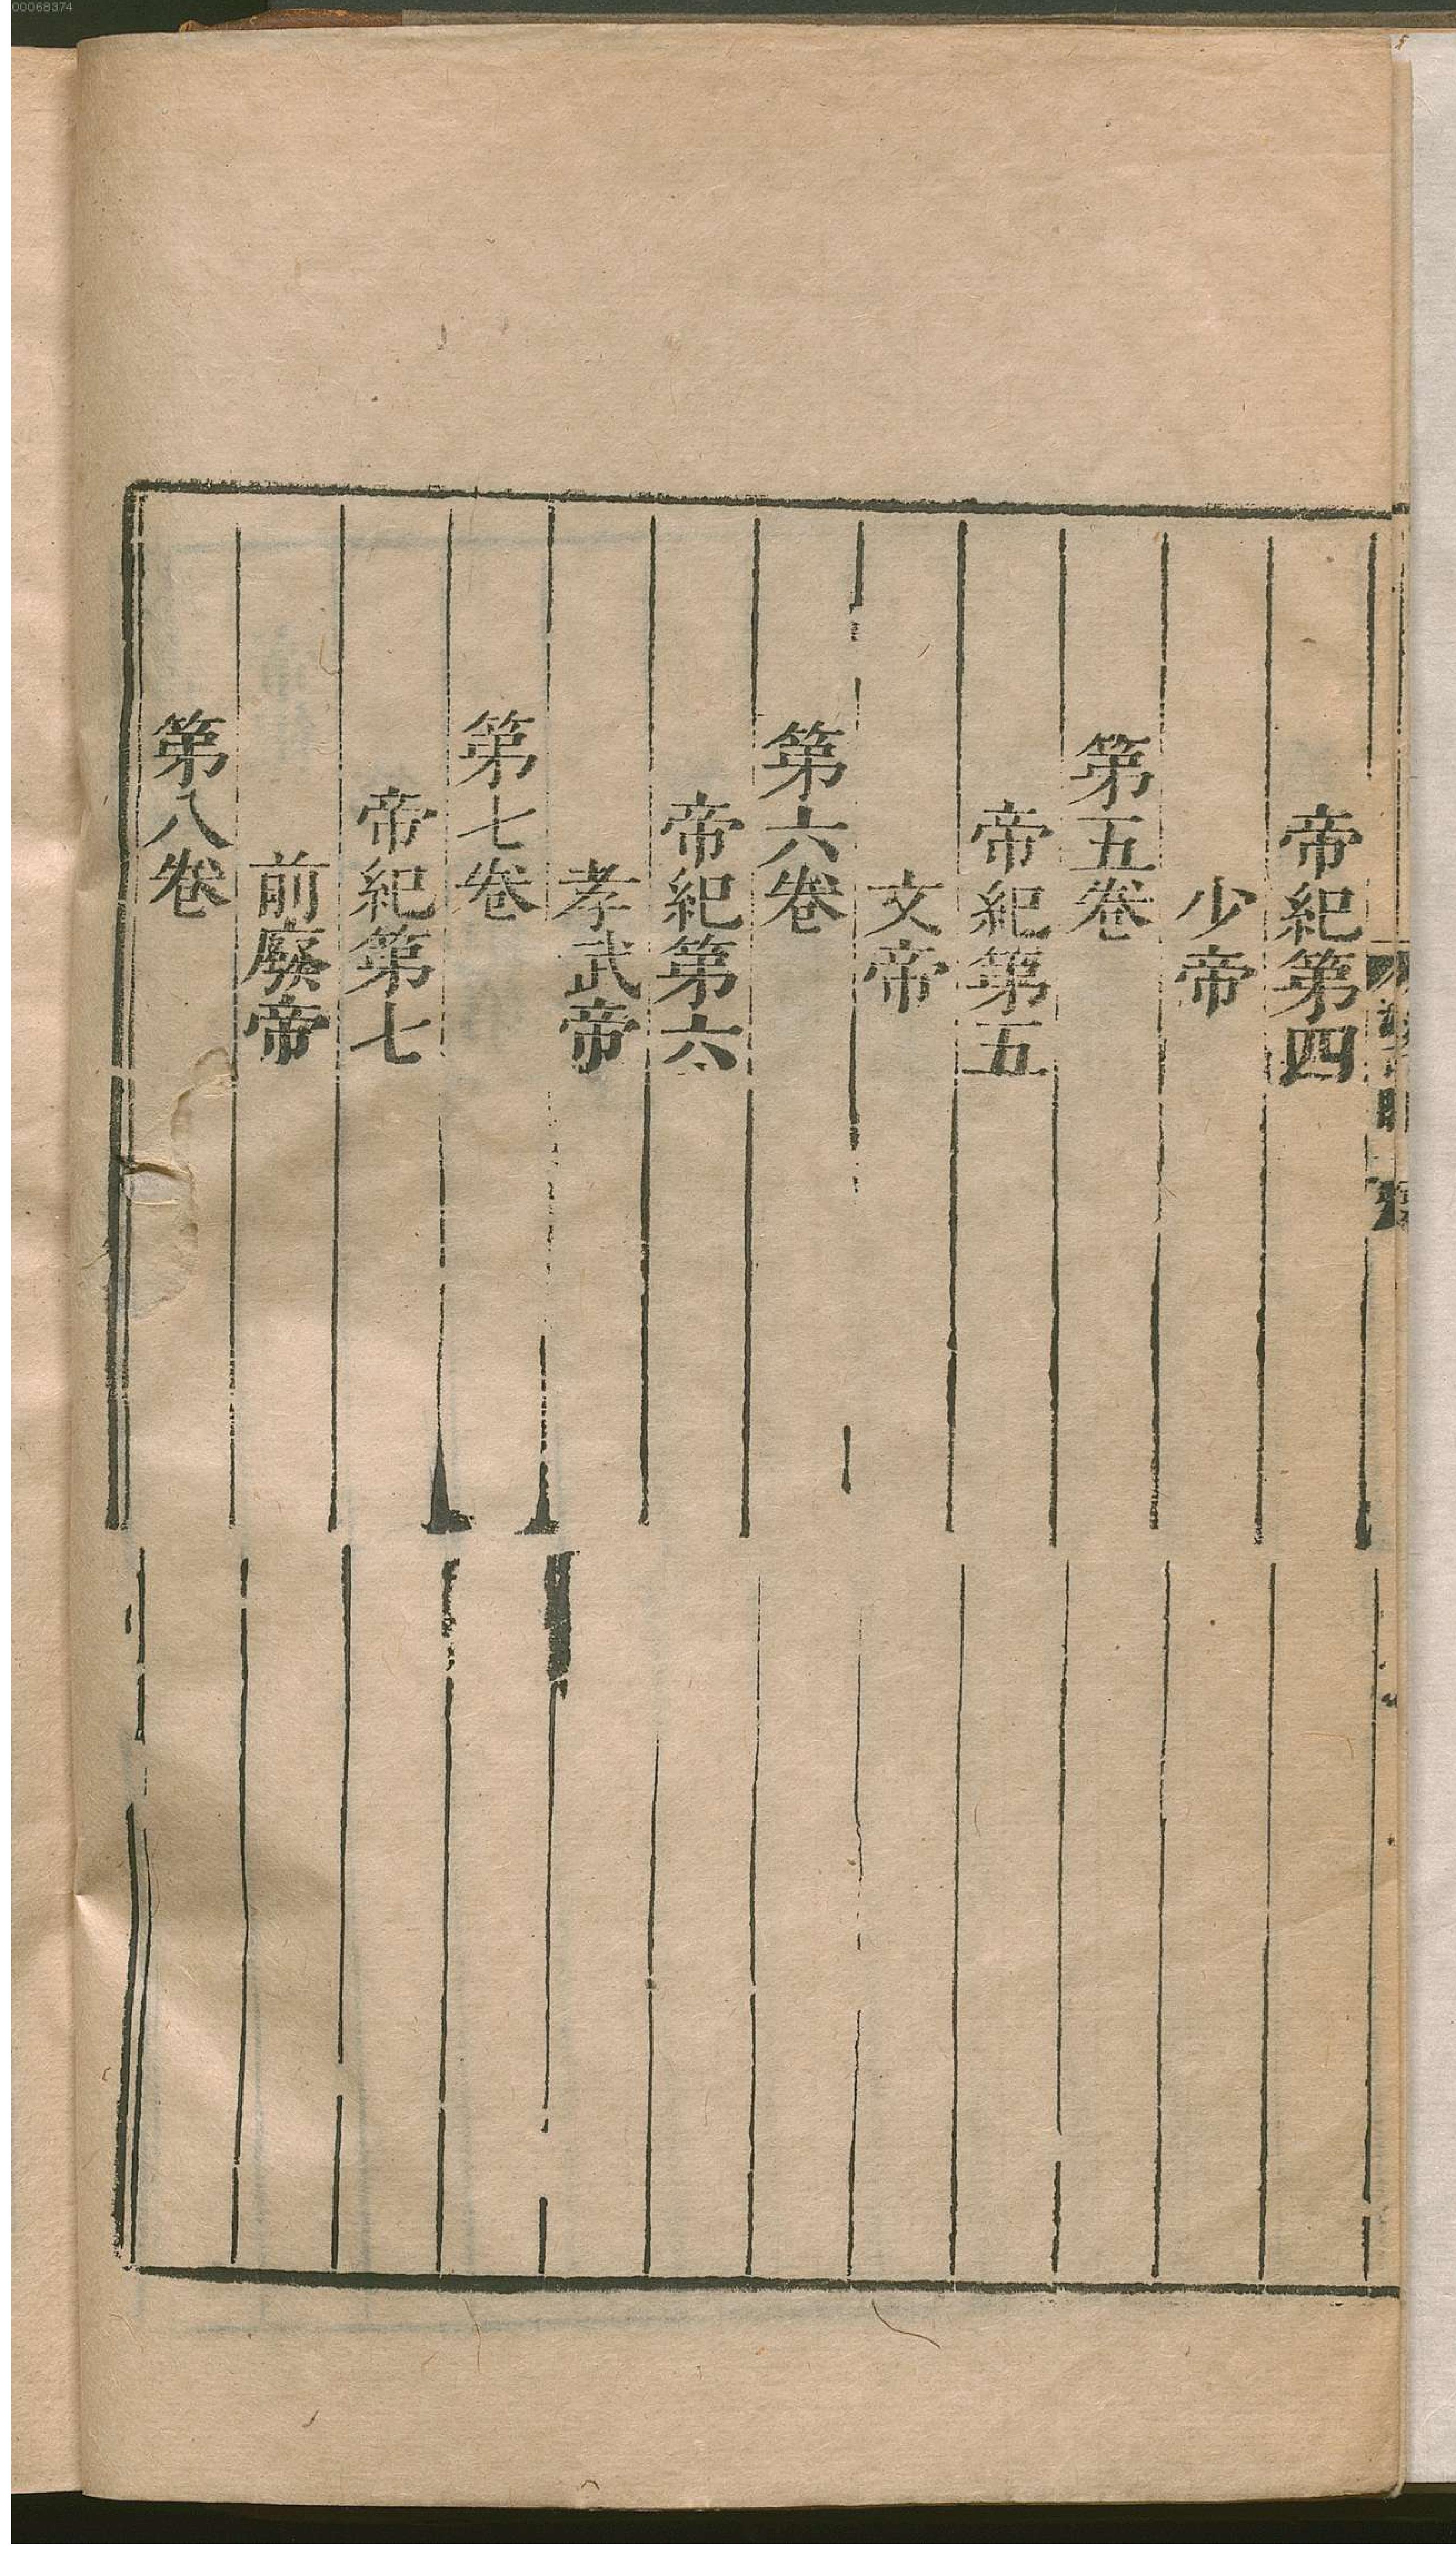 00068374
帝紀第四
少帝
第五卷
帝紀第五
文帝
第六卷
帝紀第六
孝武帝
第七卷
帝紀第七
前廢帝
第八卷